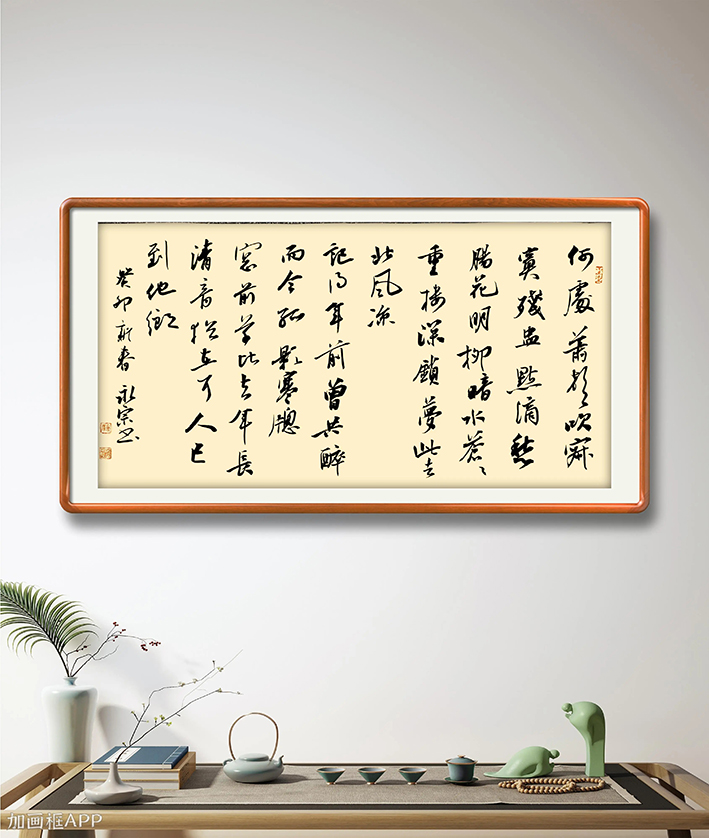 何處蕭郎吹寂
寞殘盅點滴愁
腸花明柳暗水蒼々
重樓深鎖夢此去
北風涼
記得年前曾共醉
而今孤影寒牕
窓前草比去年長
清音猶在耳人已
到他鄉
癸卯新春 永宗书
加画框APP